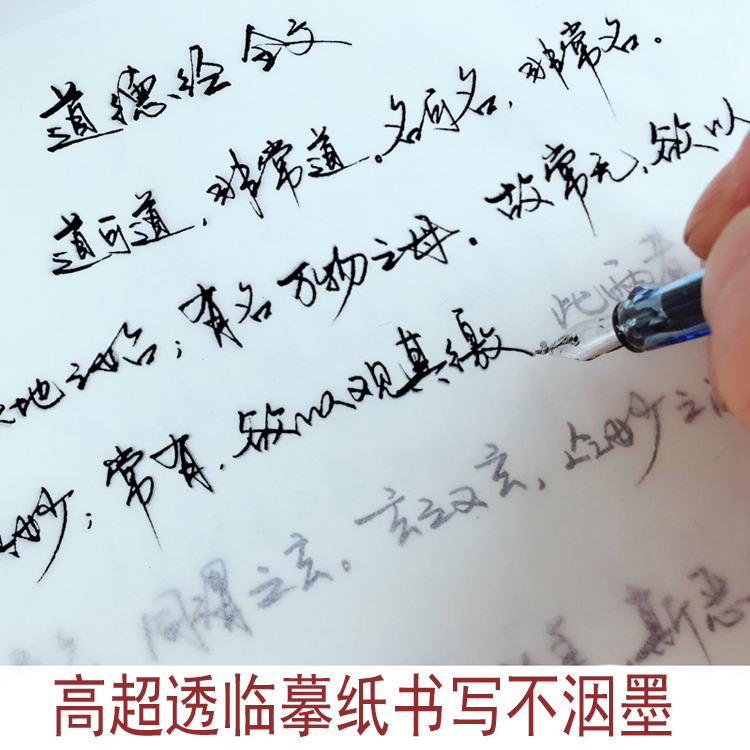 道德经全文
道可道，非常道。名可名，非常名。
地之始；有名万物之母。故常无，欲以
妙；常有，欲以观其徼。此两者
同谓之玄。玄之又玄，众妙之
斯恶
高超透临摹纸书写不洇墨